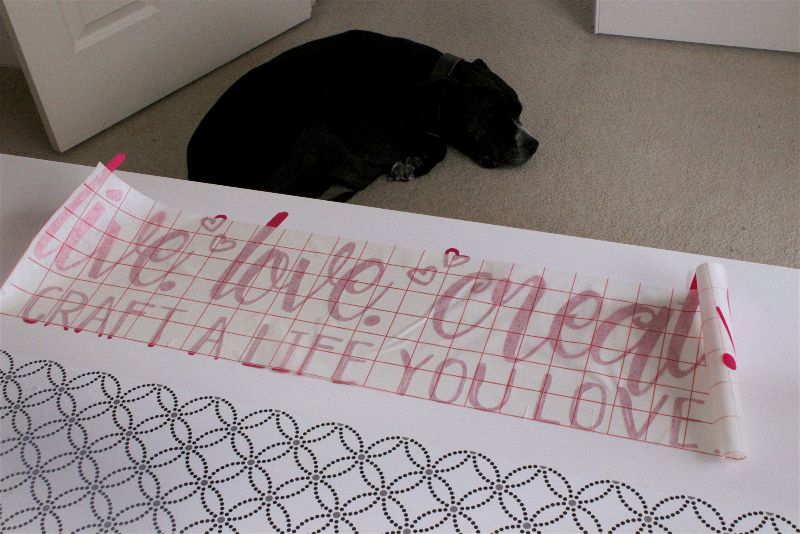 live. love. creat
CRAFT A LIFE YOU LOVE.